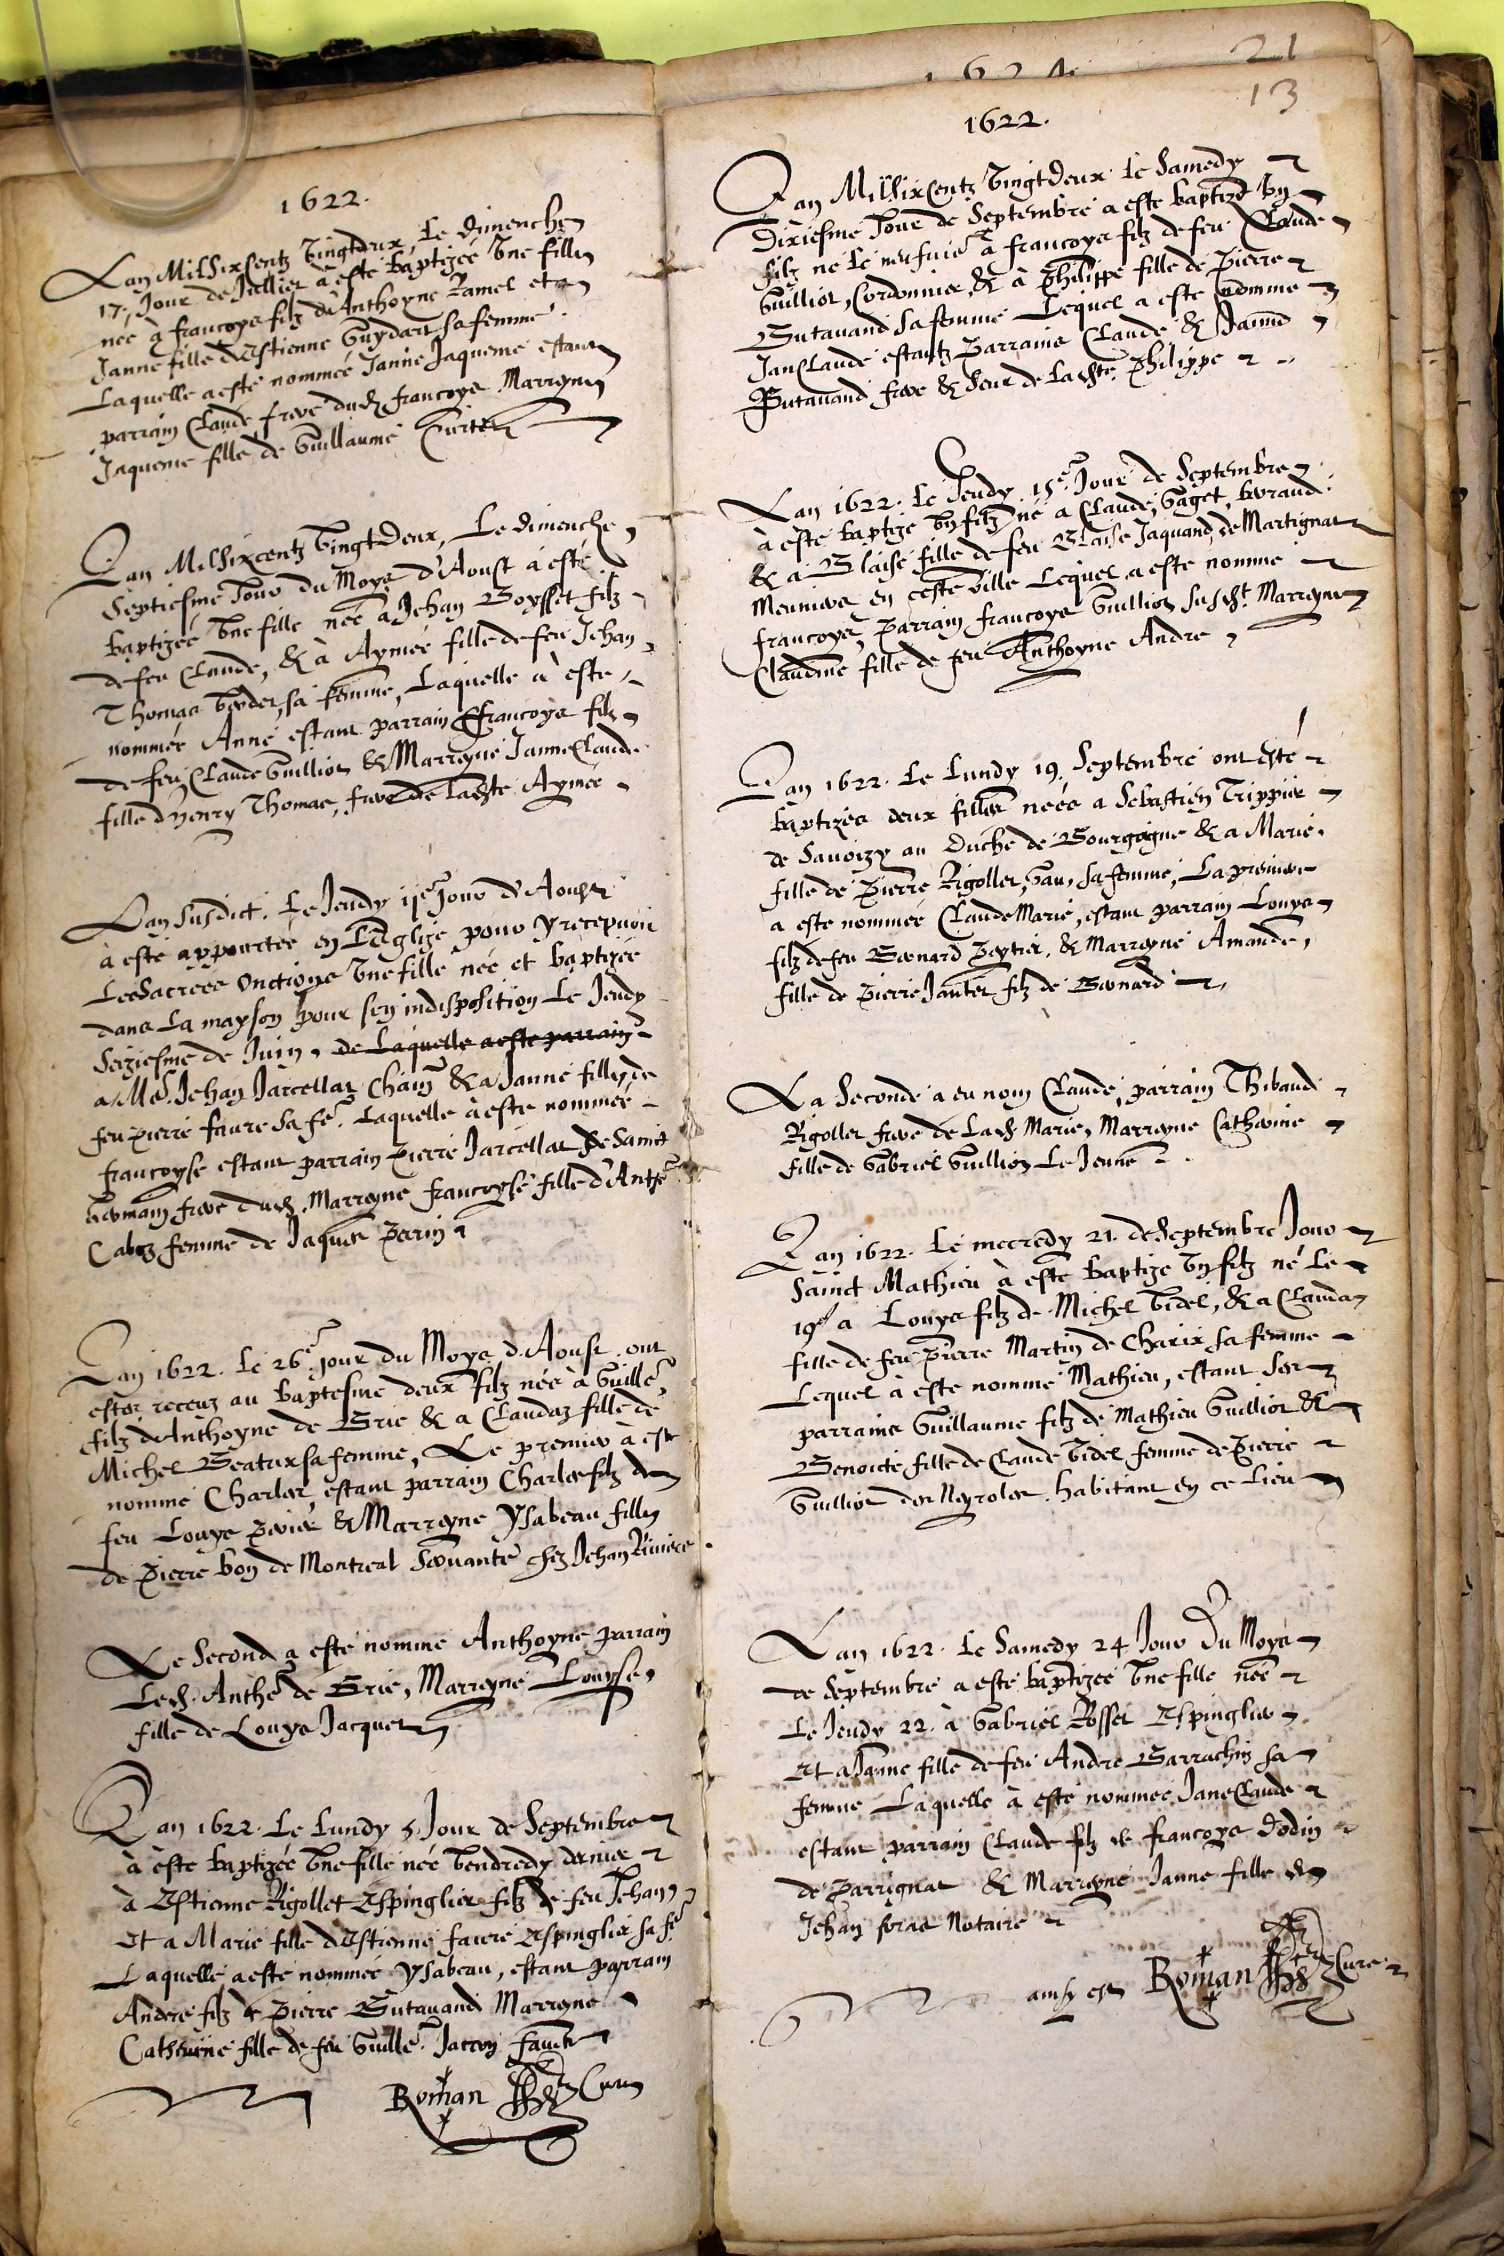 1622.
Lan Mil sixcentz Vingtdeux, Le dimenche
17. Jour de Jullier à este baptizée Vne fille
née à françoys filz d'Anthoyne Ramel et a
Janne fille d'Estienne Guydart sa femme.
Laquelle a este nommée Janne Jaqueme estant
parrain Claude frere dud françoys Marreyne
Jaqueme fille de Guillaume
Lan Mil sixcentz Vingt Deux, Le dimenche
Septiesme Jour du Moys d'Aoust à esté
baptizée Vne fille née à Jehan Boysset filz
de feu Claude, & à Aymée fille de feu Jehan
Thomas sa femme, Laquelle à este
nommée Anne estant parrain francoys filz
de feu Claude Guilliot & Marreyne Janne Claude
fille d'Henry Thomas, frere de ladte Aymée
Lan susdict. Le Jeudy 11e Jour d'Aoust
à esté appourtée en L'Eglize pour y recepuoir
Les Sacrées Onctions Vne fille née et baptizée
dans La mayson pour sen indisposition Le Jeudy
Seiziesme de Juin, de Laquelle a este parrain
a Me. Jehan Jarcellat & a Janne fille de
feu pierre faure sa fe. Laquelle à este nommée
francoyse estant parrain Pierre Jarcellat de Sainct
Germain frere dud. Marreyne francoyse fille d'Anthe
femme de Jaques Perrin
Lan 1622. Le 26e. jour du Moys d'Aoust. ont
estes receuz au baptesme deux filz nés à Guille
filz d'Anthoyne de Brie & a Claudaz fille de
Michel Beatrix sa femme, Le premier à este
nomme Charles estant parrain Charles filz de
feu Louys & Marreyne Ysabeau fille
de Pierre bon de Montreal Seruante chez Jehan Riuiere
Le Second a este nomme Anthoyne parrain
Led. Anthe de Brie, Marreyne Louyse
fille de Louys Jacquet
Lan 1622. Le Lundy 5. Jour de Septembre
à este baptizée Vne fille née Vendredy dernier
à Estienne Rigollet Espinglier filz de feu Jehan
Et a Marie fille d'Estienne faure Espinglier sa fe
Laquelle a este nommée Ysabeau, estant parrain
Andere filz de Pierre Butauand Marreyne
Catherine fille de feu Guille. Jacon
Roman Cure
21
1624
13
1622.
Lan Mil Sixcentz Vingt Deux Le Samedy
Dixiesme Jour de Septembre a este baptizé Vn
filz ne Le neufuie a francoys filz de feu Claude
Guilliot, Cordonnier, & à Philippe fille de Pierre
Butauand sa femme Lequel a este nommé
Jan Claude estantz Parrains Claude & Janne
Butauand frere & Seur de Ladte Philippe
Lan 1622. Le Jeudy 15e. Jour de Septembre
à este baptize Vn filz né a Claude Gaget,
& a Blaise fille de feu Blaise Jaquand de Martignat
Meuniere en ceste Ville Lequel a este nomme
francoys, Parrain francoys Guilliot susdt. Marreyne
Claudine fille de feu Anthoyne Andre
Lan 1622. Le Lundy 19. Septembre ont esté
baptizées deux filles nées a Sebastien Trippier
de Sauoizy au Duche de Bourgogne & a Marie
fille de Pierre Rigollet, sa femme, La premiere
a este nommée Claude Marie, estant parrain Louys
filz de feu Bernard & Marreyne Amande,
fille de Pierre Jantet filz de Bernard
La Seconde a eu nom Claude, parrain Thibaud
Rigollet frere de Lad. Marie, Marreyne Catherine
fille de Gabriel Guilliot Le Jeune
Lan 1622. Le mecredy 21. de Septembre Jour
Sainct Mathieu à este baptize Vn filz né Le
19e a Louys filz de Michel Videl, & a Clauda
fille de feu Pierre Martin de Charix sa femme
Lequel à este nomme Mathieu, estant ses
parrains Guillaume filz de Mathieu Guilliot &
Benoicte fille de Claude Videl femme de Pierre
Guilliot des Neyroles. habitant en ce Lieu
Lan 1622. Le Samedy 24 Jour Du Moys
de Septembre a este baptizée Vne fille née
Le Jeudy 22. à Gabriel Rosset Espinglier
Et a Janne fille de feu Andre Barrachin sa
femme Laquelle à este nommée Jane Claude
estant parrain Claude filz de francoys Dodin
de Parrignat & Marreyne Janne fille de
Jehan foras Notaire
ainsy est Roman Cure